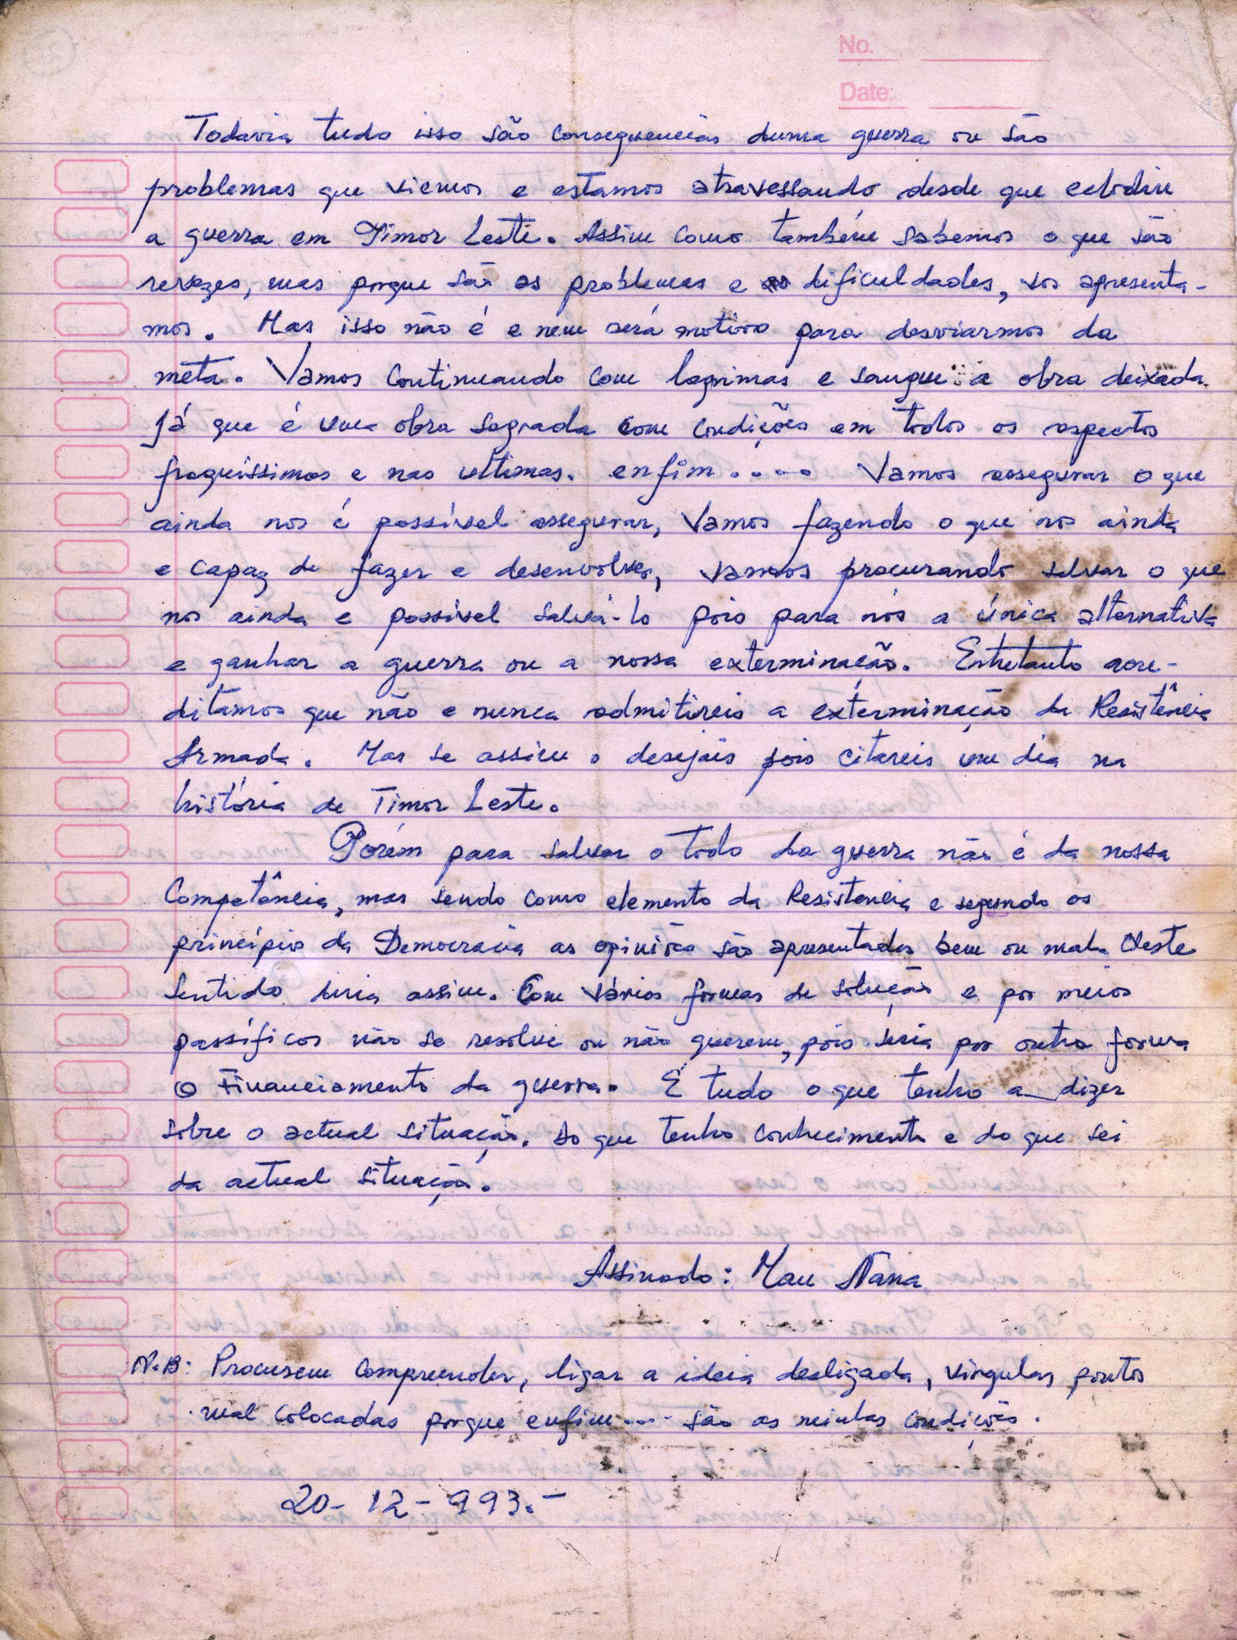 No.
Date:
Todavia tudo isso são consequencias duma guerra ou são
problemas que viemos e estamos atravessando desde que eclodiu
a guerra em Timor Leste. Assim como também sabemos o que são
revezes, mas porque são os problemas e as dificuldades, vos apresenta-
mos. Mas isso não é e nem será motivo para desviarmos da
meta. Vamos continuando com lagrimas e sangue a obra deixada.
Já que é uma obra sagrada com condições em todos os aspectos
fraquissimos e nas ultimas. enfim.... Vamos assegurar o que
ainda nos é possível assegurar, Vamos fazendo o que nos ainda
e capaz de fazer e desenvolver, vamos procurando salvar o que
nos ainda e possível salvá-lo pois para nós a única alternativa
e ganhar a guerra ou a nossa exterminação. Entretanto acre-
ditamos que não e nunca admitireis a exterminação da Resistência
Armada. Mas se assim o desejais pois citareis um dia na
história de Timor Leste.
Porém para salvar o todo da guerra não é da nossa
Competência, mas sendo como elemento da Resistencia e segundo os
princípio da Democracia as opiniões são apresentadas bem ou mal. Neste
Sentido seria assim. Com vários formas de solução e por meios
passíficos não se resolve ou não querem, pois seria por outra forma
O Financiamento da guerra. E tudo o que tenho a dizer
sobre o actual situação. do que tenho conhecimento e do que sei
da actual situação.
Assinado: Mau Nana
N.B: Procurem compreender, ligar a ideia desligada, virgulas pontos
mal colocadas porque enfim.... são as minhas condições.
20-12-993.-